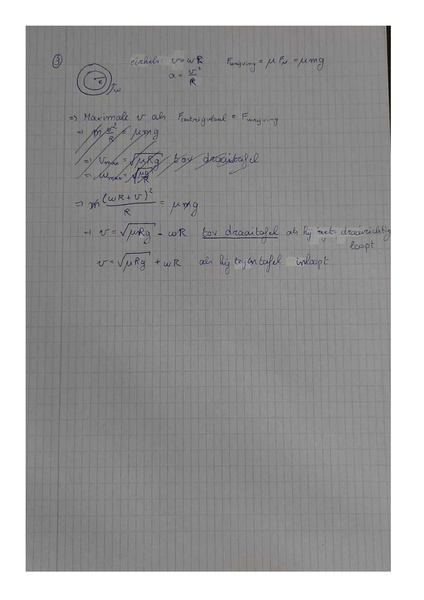 ③ cirkels v = ωR F wrijving = μ F_N = μmg
R ω a = v²/R
⇒ Maximale v als F centrifugaal = F wrijving
→ m v²/R = μmg
→ v max = √μRg tov draaitafel
→ ω max = √μg/R
⇒ m (ωR + v)²/R = μmg
→ v = √μRg - ωR tov draaitafel als hij draairichting
loopt
v = √μRg + ωR als hij inloopt